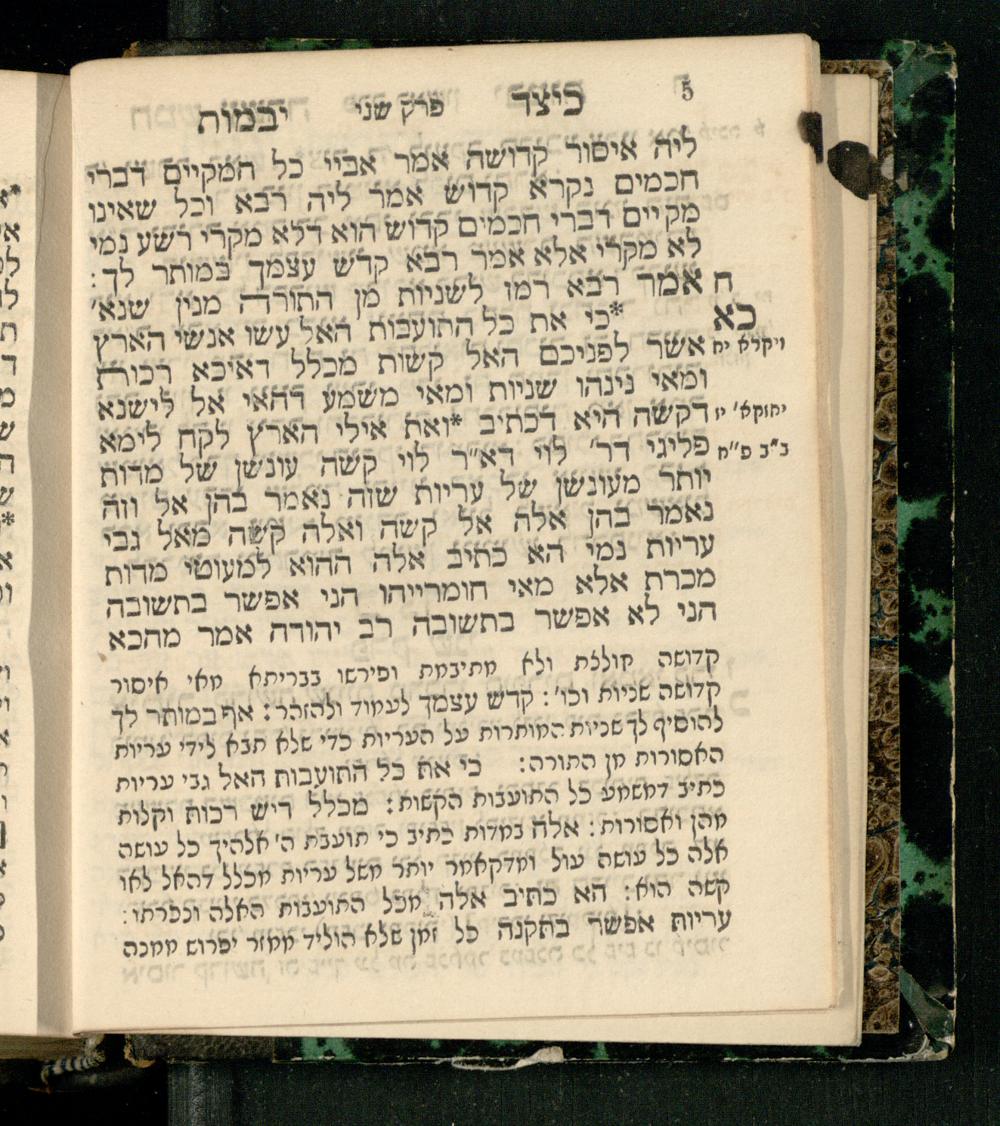 5 כיצד פרק שני יבמות
ליה איסור קדושה אמר אביי כל המקיים דברי
חכמים נקרא קדוש אמר ליה רבא וכל שאינו
מקיים דברי חכמים קדוש הוא דלא מקרי רשע נמי
לא מקרי אלא אמר רבא קדש עצמך במותר לך:
ח אמר רבא רמז לשניות מן התורה מנין שנא'
כא *כי את כל התועבות האל עשו אנשי הארץ
ויקרא יח אשר לפניכם האל קשות מכלל דאיכא רכות
ומאי נינהו שניות ומאי משמע דהאי אל לישנא
יחזקא' יז דקשה היא דכתיב *ואת אילי הארץ לקח לימא
ב"ב פ"ח פליגי דר' לוי דא"ר לוי קשה עונשן של מדות
יותר מעונשן של עריות שזה נאמר בהן אל וזה
נאמר בהן אלה אל קשה ואלה קשה מאל גבי
עריות נמי הא כתיב אלה ההוא למעוטי מדות
מכרת אלא מאי חומרייהו הני אפשר בתשובה
הני לא אפשר בתשובה רב יהודה אמר מהכא
קדושה חולצת ולא מתיבמת ופירשו בבריתא מאי איסור
קדושה שניות וכו': קדש עצמך לעמוד ולהזהר: אף במותר לך
להוסיף לך שניות המותרות על העריות כדי שלא תבא לידי עריות
האסורות מן התורה: כי את כל התועבות האל גבי עריות
כתיב דמשמע כל התועבות הקשות: מכלל דיש רכות וקלות
מהן ואסורות: אלה במדות כתיב כי תועבת ה' אלהיך כל עושה
אלה כל עושה עול ומדקאמר יותר משל עריות מכלל דהאל לאו
קשה הוא: הא כתיב אלה מכל התועבות האלה ונכרתו:
עריות אפשר בתקנה כל זמן שלא הוליד ממזר יפרוש ממנה